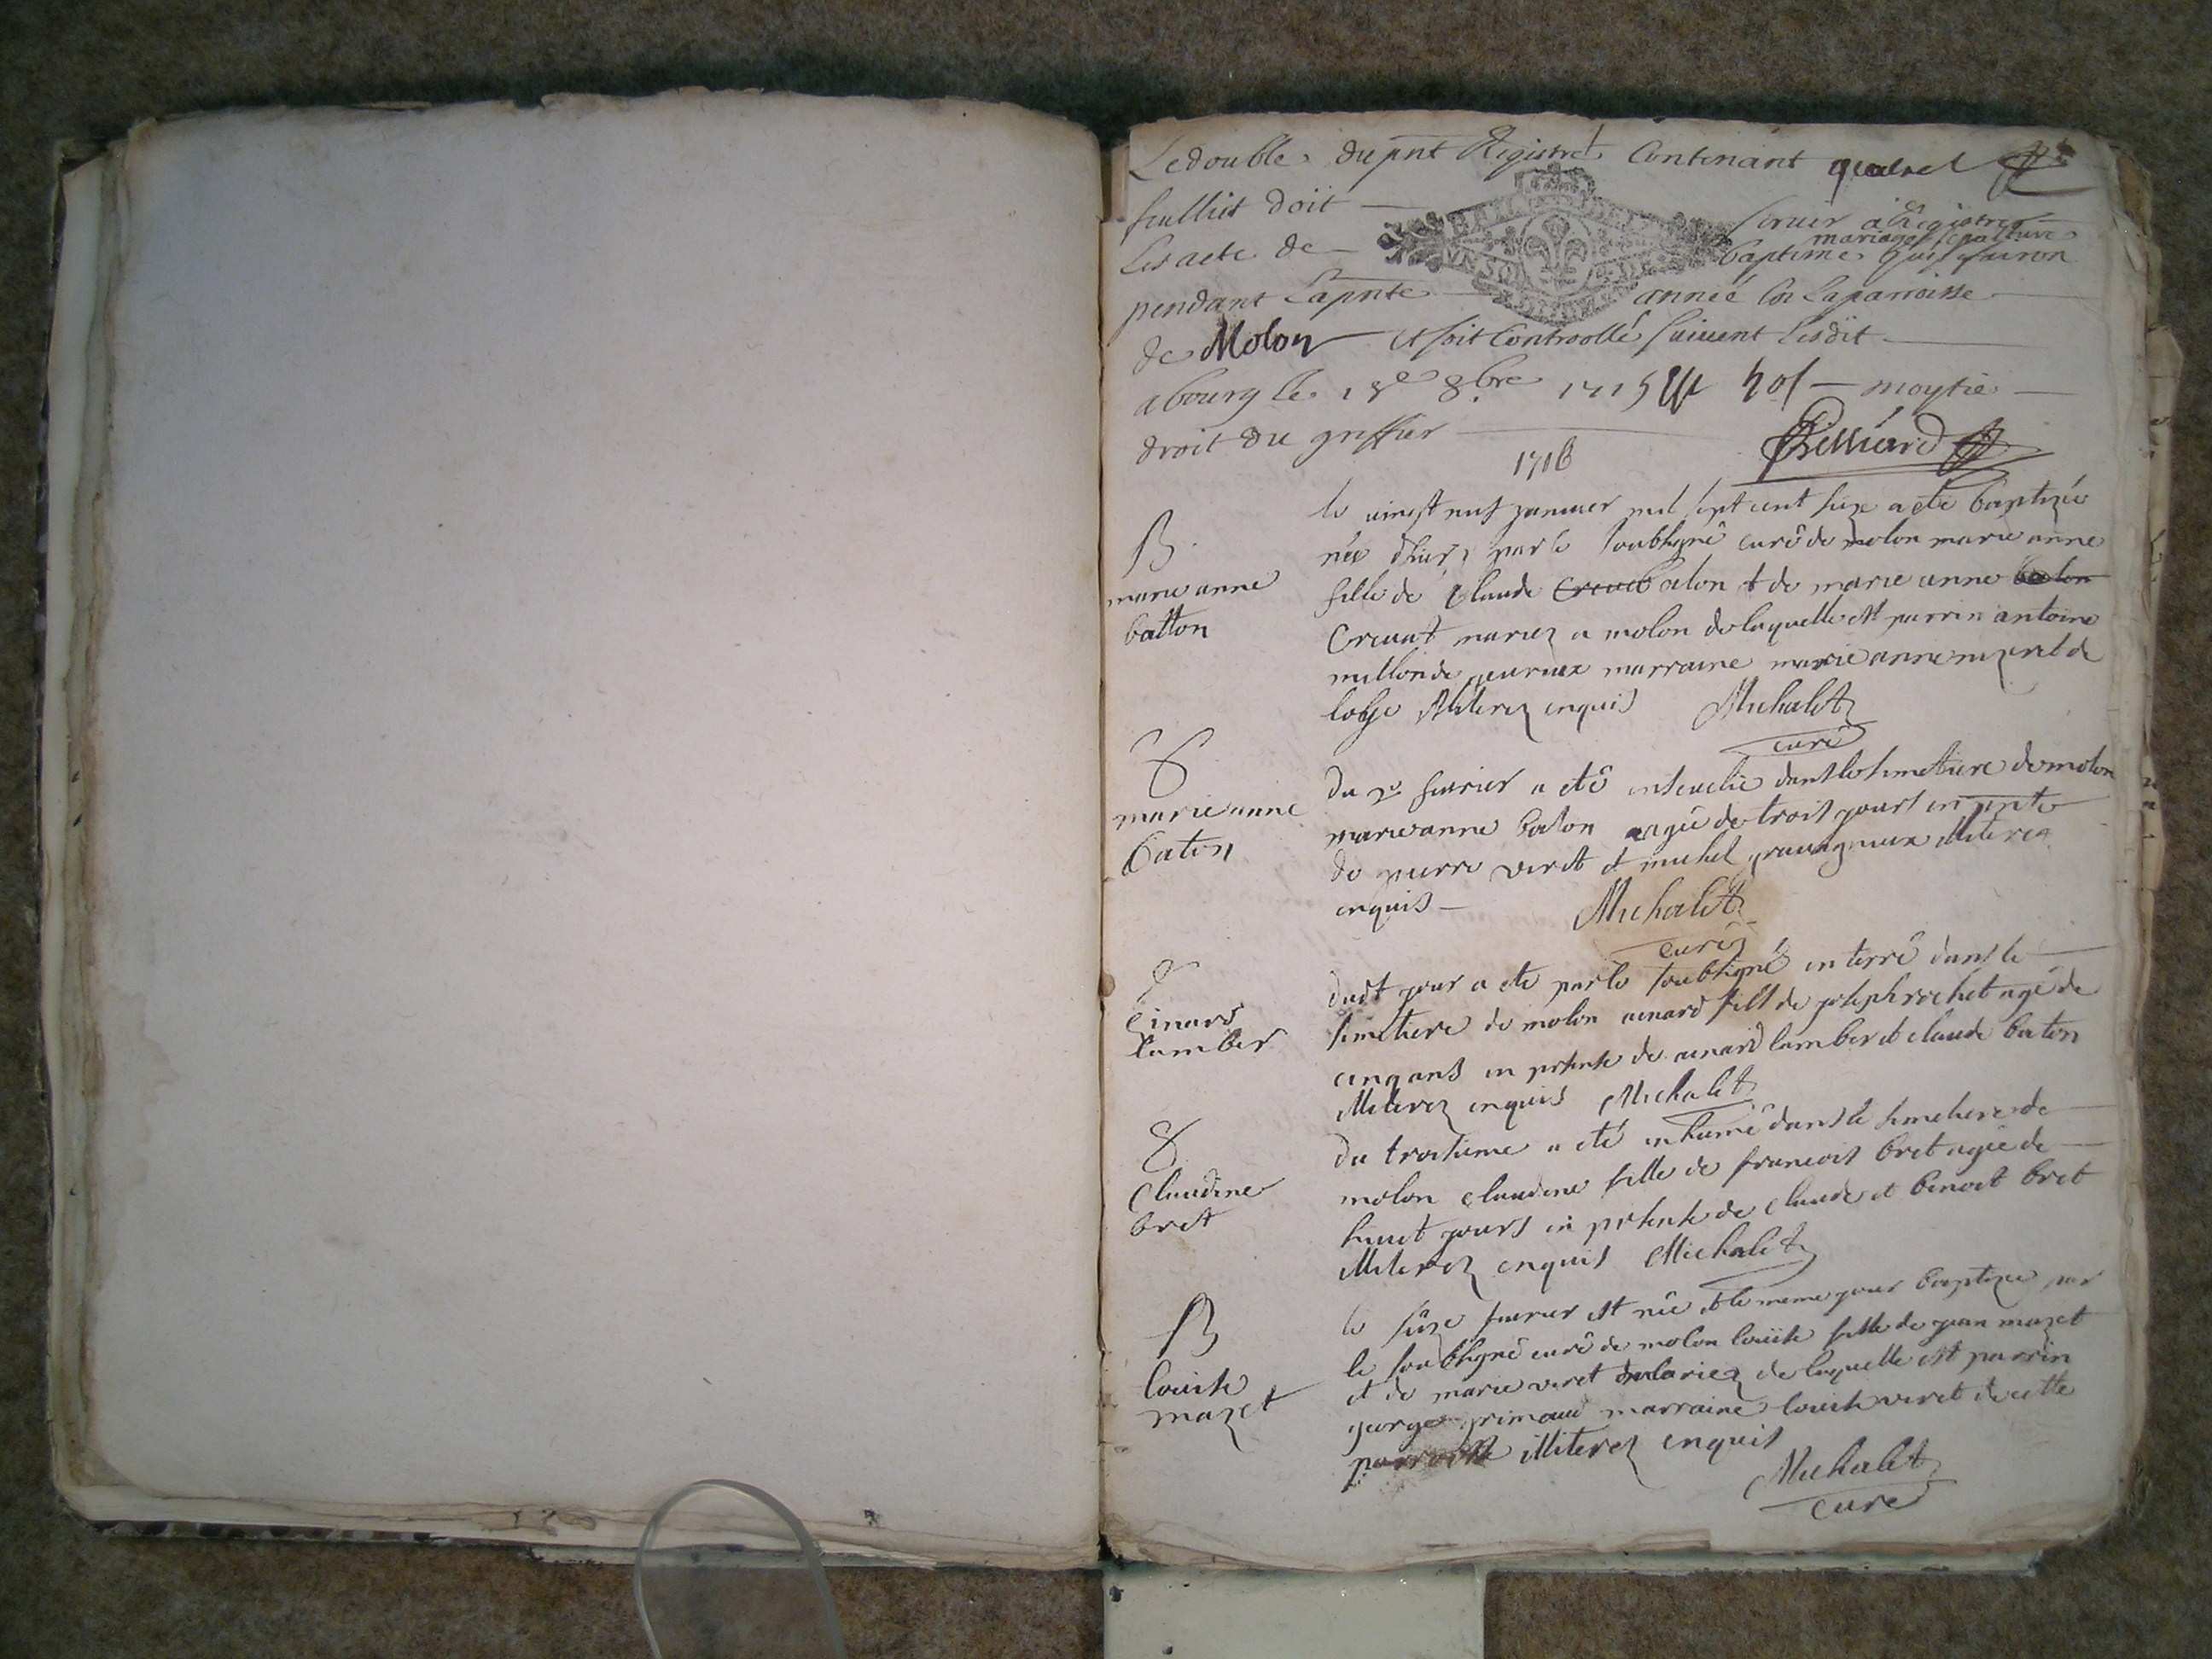 Le double du pnt Registre Contenant quatre
feullict doit servir à Registrer
mariages sepulture
Les acte de baptime qui se fairon
pendant La pnte année En La parroisse
de Molon et soit Controollé suivent L'esdit
a bourg Le 18e 8bre 1715 moytie
droit du greffier
1716
le vingt neuf janvier mil sept cent sèze a été baptizée
B née d'hier, par le soubsigné curé de molon marie anne
marie anne fille de Claude Crevat baton et de marie anne baton
batton Crevat mariez a molon de laquelle est parrin antoine
millon de marraine marie anne de
illiterez enquis Michalet
curé
S du fevrier a eté enseuelie dans le simetiere de molon
marie anne marie anne baton agée de troit jours en pnte
baton de pierre veret et michel illiterez
enquis Michalet
curé
dudt jour a eté par le soubsigné enterré dans le
simetiere de molon ainard fils de joseph rochet agé de
lamber cinq ans en presente de ainard lamber et claude baton
illiterez enquis Michalet
S du troisieme a eté inhumé dans le simetiere de
Claudine molon claudine fille de francois bret agée de
bret huict jours en presente de claude et benoit bret
illiterez enquis Michalet
B le sèze fevrier est née et le meme jour baptizee par
Louise le soubsigné curé de molon louise fille de jean mazet
mazet et de marie veret mariez de laquelle est parrin
george grimaud marraine louise veret de cette
parroisse illiterez enquis
Michalet
curé